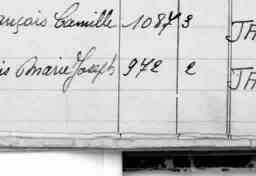 ançois Camille 1087 3 JH
is Marie Joseph 972 2 JH